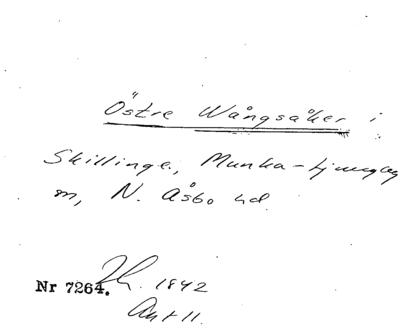 Östre Wångsåker i
Skillinge, Munka-Ljungby
sn, N. Åsbo hd.
Nr 7264. 1842
Akt 11.